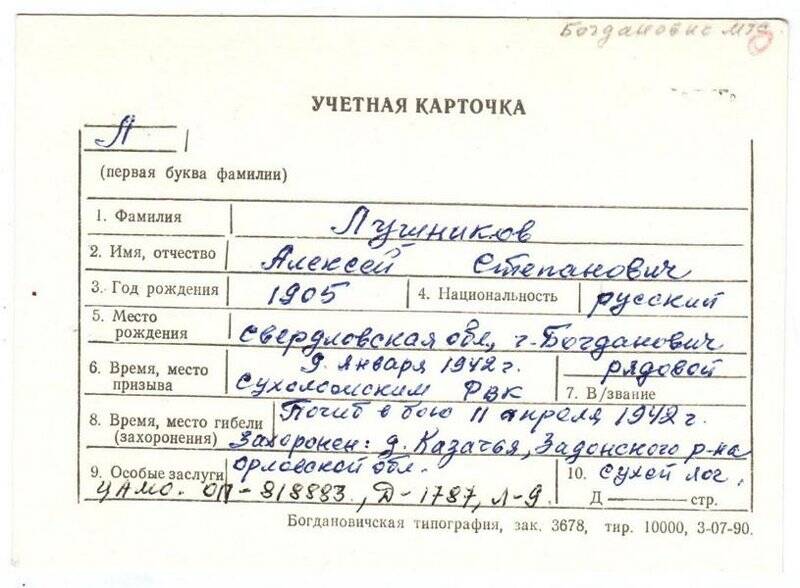 Богданович МТС
УЧЕТНАЯ КАРТОЧКА
Л
(первая буква фамилии)
1. Фамилия Лушников
2. Имя, отчество Алексей Степанович
3. Год рождения 1905 4. Национальность русский
5. Место рождения Свердловская обл, г. Богданович
6. Время, место призыва 9 января 1942 г. Сухоложским РВК
рядовой
7. В/звание
8. Время, место гибели (захоронения) Погиб в бою 11 апреля 1942 г.
Захоронен: д. Казачья, Задонского р-на
Орловской обл.
9. Особые заслуги
ЦАМО. ОП-818883., Д-1787, Л-9
10. Сухой Лог,
Д стр.
Богдановичская типография, зак. 3678, тир. 10000, 3-07-90.